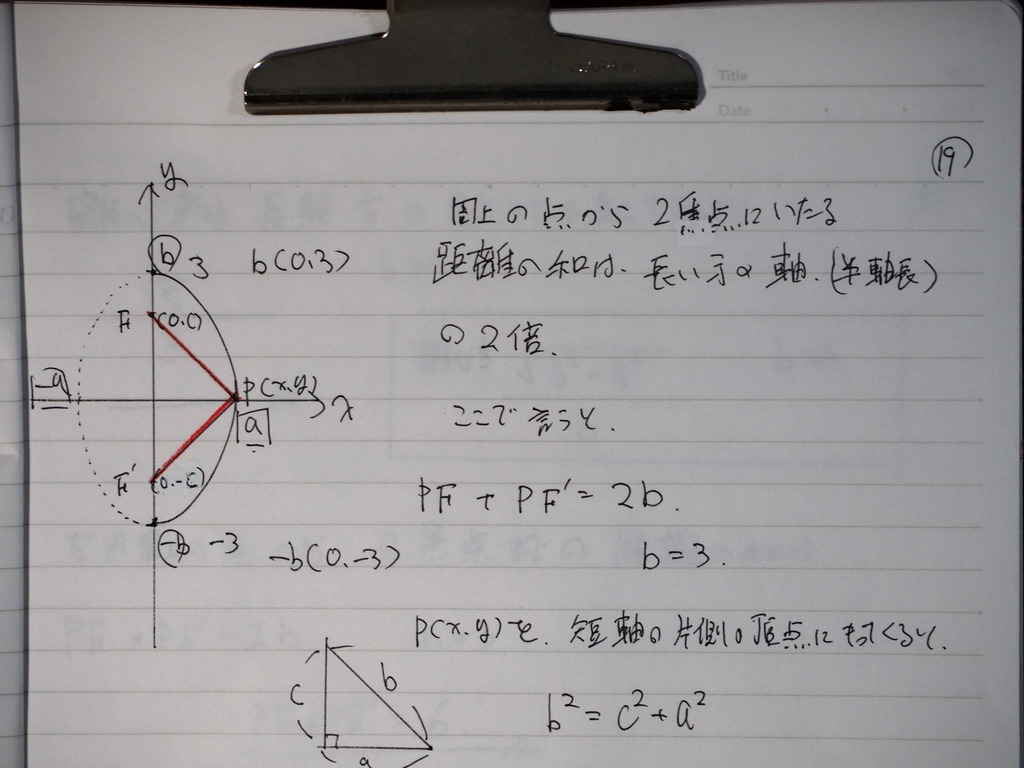 JAPAN
Title
Date
19
y
b 3 b(0,3)
F (0,C)
-a
P(x,y)
x
a
F' (0,-C)
-b -3 -b(0,-3)
周上の点から 2焦点にいたる
距離の和は、長い方の軸、(半軸長)
の2倍、
ここで言うと、
PF + PF' = 2b.
b = 3.
P(x,y)を、短軸の片側の頂点にもってくると、
c
b
a
b² = c² + a²